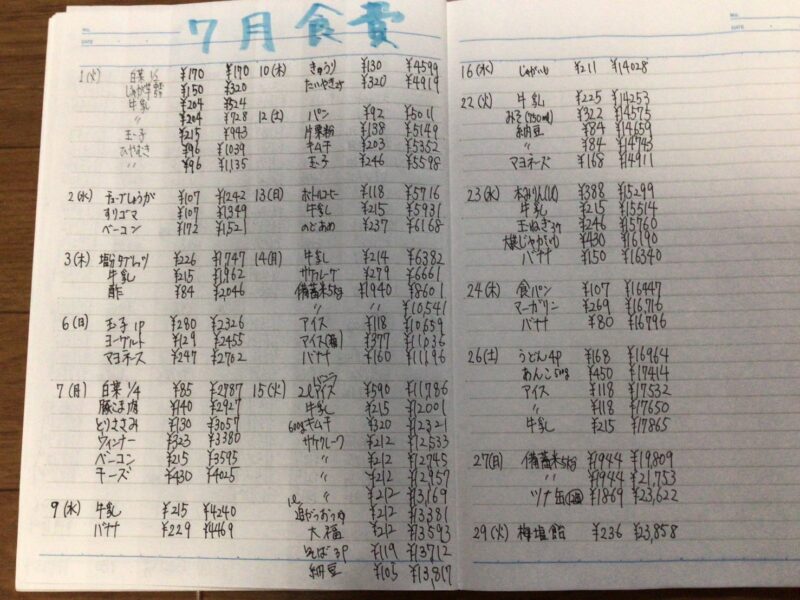 7月食費
1(火) 白菜1/2 ¥170 ¥170
¥150 ¥320
牛乳 ¥204 ¥524
〃 ¥204 ¥728
玉子 ¥215 ¥943
ひやむぎ ¥96 ¥1039
〃 ¥96 ¥1135
2(水) チューブしょうが ¥107 ¥1242
すりゴマ ¥107 ¥1349
ベーコン ¥172 ¥1521
3(木) 塩分タブレッツ ¥226 ¥1747
牛乳 ¥215 ¥1962
酢 ¥84 ¥2046
6(日) 玉子1P ¥280 ¥2326
ヨーグルト ¥129 ¥2455
マヨネーズ ¥247 ¥2702
7(月) 白菜1/4 ¥85 ¥2787
豚こま肉 ¥140 ¥2927
とりささみ ¥130 ¥3057
ウィンナー ¥323 ¥3380
ベーコン ¥215 ¥3595
チーズ ¥430 ¥4025
9(水) 牛乳 ¥215 ¥4240
バナナ ¥229 ¥4469
10(木) きゅうり ¥130 ¥4599
たいやき ¥320 ¥4919
12(土) パン ¥92 ¥5011
片栗粉 ¥138 ¥5149
キムチ ¥203 ¥5352
玉子 ¥246 ¥5598
13(日) ボトルコーヒー ¥118 ¥5716
牛乳 ¥215 ¥5931
のどあめ ¥237 ¥6168
14(月) 牛乳 ¥214 ¥6382
サケフレーク ¥279 ¥6661
備蓄米5kg ¥1940 ¥8601
〃 〃 ¥10,541
アイス ¥118 ¥10659
アイス(箱) ¥377 ¥11036
バナナ ¥160 ¥11196
15(火) 2ℓアイス ¥590 ¥11786
牛乳 ¥215 ¥12001
600gキムチ ¥320 ¥12321
サケフレーク ¥212 ¥12533
〃 ¥212 ¥12745
〃 ¥212 ¥12957
〃 ¥212 ¥13169
1ℓ 追がつおつゆ ¥212 ¥13381
大福 ¥212 ¥13593
そば3P ¥119 ¥13712
納豆 ¥105 ¥13,817
No.
DATE
16(水) じゃがいも ¥211 ¥14028
22(火) 牛乳 ¥225 ¥14253
みそ(750ml) ¥322 ¥14575
納豆 ¥84 ¥14659
〃 ¥84 ¥14743
マヨネーズ ¥168 ¥14911
23(水) 本みりん(1ℓ) ¥388 ¥15299
牛乳 ¥215 ¥15514
玉ねぎ3ケ ¥246 ¥15760
大袋じゃがいも ¥430 ¥16190
バナナ ¥150 ¥16340
24(木) 食パン ¥107 ¥16447
マーガリン ¥269 ¥16,716
バナナ ¥80 ¥16796
26(土) うどん4P ¥168 ¥16964
あんこ500g ¥450 ¥17414
アイス ¥118 ¥17532
〃 ¥118 ¥17650
牛乳 ¥215 ¥17865
27(日) 備蓄米5kg ¥1944 ¥19,809
〃 ¥1944 ¥21,753
ツナ缶 ¥1869 ¥23,622
29(火) 梅塩飴 ¥236 ¥23,858